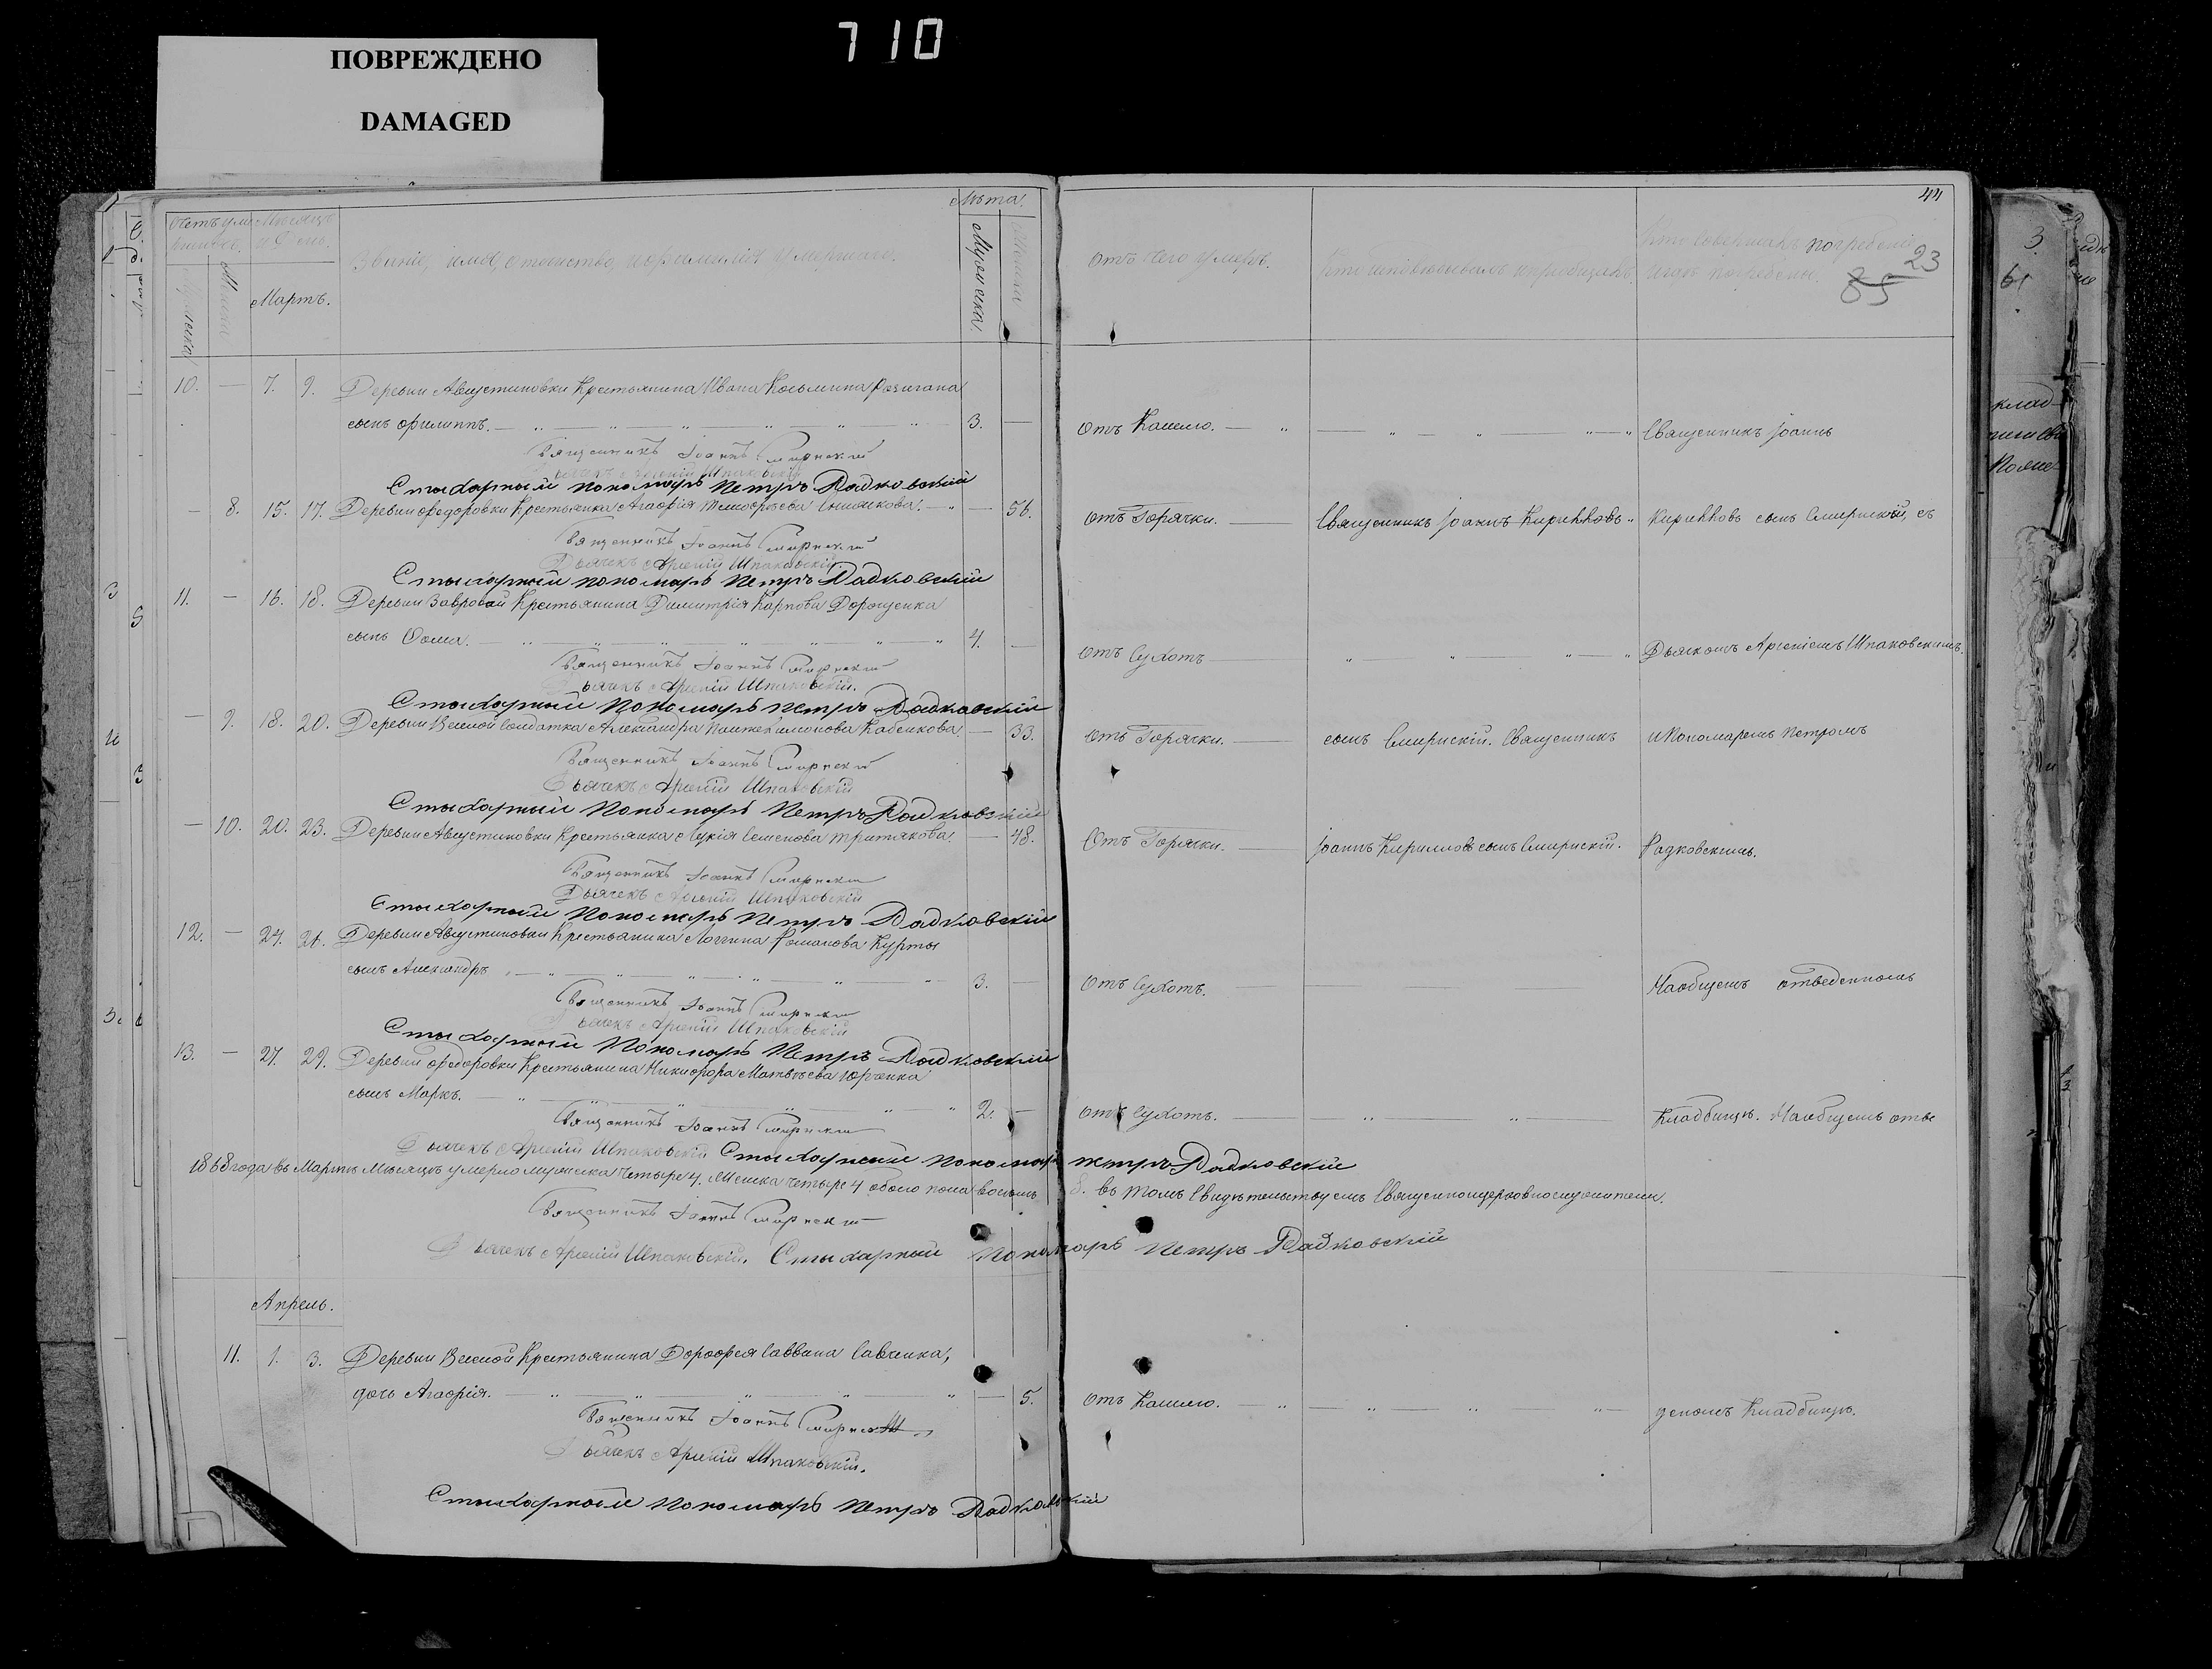 710
ПОВРЕЖДЕНО
DAMAGED
44
Счетъ умершихъ. Мѣсяцъ и день.
Званіе, имя, отчество, и фамилія умершаго.
Лѣта.
Отъ чего умеръ.
Кто исповѣдывалъ и пріобщалъ.
Кто совершалъ погребеніе
и гдѣ погребены.
23
85
Мартъ.
Мужеска.
Женска
10. — 7. 9. Деревни Августиновки Крестьянина Ивана Косьмина
сынъ Филиппъ. — 3. — Отъ Кашлю. — Священникъ Іоаннъ
Священникъ Іоаннъ Смирнскій
Дьячекъ Арсеній Шпаковскій
Стыхарный пономарь Петръ Радковскій
— 8. 15. 17. Деревни Федоровки Крестьянка Агафія — 56. Отъ Горячки. — Священникъ Іоаннъ Кирилловъ Кирилловъ сынъ Смирнскій, съ
Священникъ Іоаннъ Смирнскій
Дьячекъ Арсеній Шпаковскій
Стыхарный пономарь Петръ Радковскій
11. — 16. 18. Деревни Крестьянина Димитрія Карпова
сынъ Ѳома. — 4. — Отъ Сухотъ — Дьячкомъ Арсеніемъ Шпаковскимъ.
Священникъ Іоаннъ Смирнскій
Дьячекъ Арсеній Шпаковскій.
Стыхарный пономарь Петръ Радковскій
— 9. 18. 20. Деревни Веселой Солдатка Александра Пантелимонова — 33. Отъ Горячки. — сынъ Смирнскій. Священникъ и Пономаремъ Петромъ
Священникъ Іоаннъ Смирнскій
Дьячекъ Арсеній Шпаковскій
Стыхарный пономарь Петръ Радковскій
— 10. 20. 23. Деревни Августиновки Крестьянка Лукія Семенова Третьякова. — 48. Отъ Горячки. — Іоаннъ Кирилловъ сынъ Смирнскій. Радковскимъ.
Священникъ Іоаннъ Смирнскій
Дьячекъ Арсеній Шпаковскій
Стыхарный пономарь Петръ Радковскій
12. — 24. 26. Деревни Августиновки Крестьянина Логгина Романова Курты
сынъ Александръ — 3. — Отъ Сухотъ. — На общемъ отведенномъ
Священникъ Іоаннъ Смирнскій
Дьячекъ Арсеній Шпаковскій
Стыхарный пономарь Петръ Радковскій
13. — 27. 29. Деревни Федоровки Крестьянина Никифора Матвѣева Юрченка
сынъ Маркъ. — 2. — Отъ Сухотъ. — Кладбищѣ. На общемъ отве
Священникъ Іоаннъ Смирнскій
Дьячекъ Арсеній Шпаковскій Стыхарный пономарь Петръ Радковскій
1868 года въ Мартѣ Мѣсяцѣ умерло мужеска четыре 4. Женска четыре 4 обоего пола восемь 8. въ томъ Свидѣтельствуемъ Священноцерковнослужители.
Священникъ Іоаннъ Смирнскій
Дьячекъ Арсеній Шпаковскій. Стыхарный пономарь Петръ Радковскій
Апрель.
11. 1. 3. Деревни Веселой Крестьянина Дорофея Саввина Савченка,
дочь Агафія. — 5. Отъ Кашлю. — деномъ Кладбищѣ.
Священникъ Іоаннъ Смирнскій
Дьячекъ Арсеній Шпаковскій.
Стыхарный пономарь Петръ Радковскій